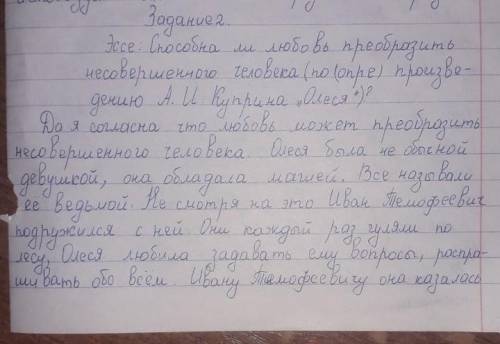 Задание 2.
Эссе: Способна ли любовь преобразить
несовершенного человека (по (опре) произве-
дению А. И Куприна „Олеся")?
Да я согласна что любовь может преобразить
несовершенного человека. Олеся была не обычной
девушкой, она обладала магией. Все называли
ее ведьмой. Не смотря на это Иван Темофеевич
подружился с ней. Они каждый раз гуляли по
лесу, Олеся любила задавать ему вопросы, распра-
шивать обо всём. Ивану Темофеевичу она казалась